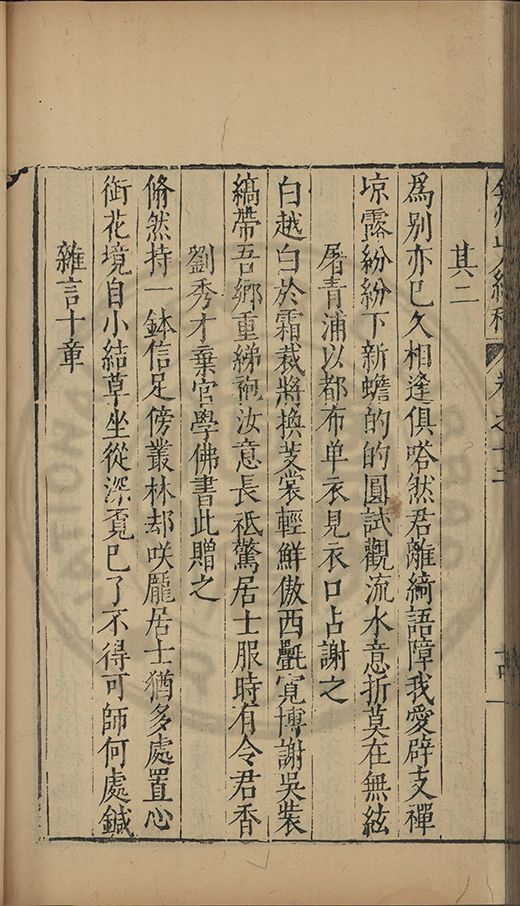 弇州山人續稿 卷之十二 十四
其二
爲别亦已久相逢俱嗒然君離綺語障我愛辟支禪
凉露紛紛下新蟾的的圓試觀流水意折莫在無絃
屠青浦以都布单衣見衣口占謝之
白越白於霜裁將換芰裳輕鮮傲西㲲寛博謝吳装
縞帶吾鄉重綈袍汝意長祇驚居士服時有令君香
劉秀才棄官學佛書此贈之
翛然持一鉢信足傍叢林却咲龎居士猶多處置心
銜花境自小結草坐從深覔巳了不得可師何處鍼
雜言十章